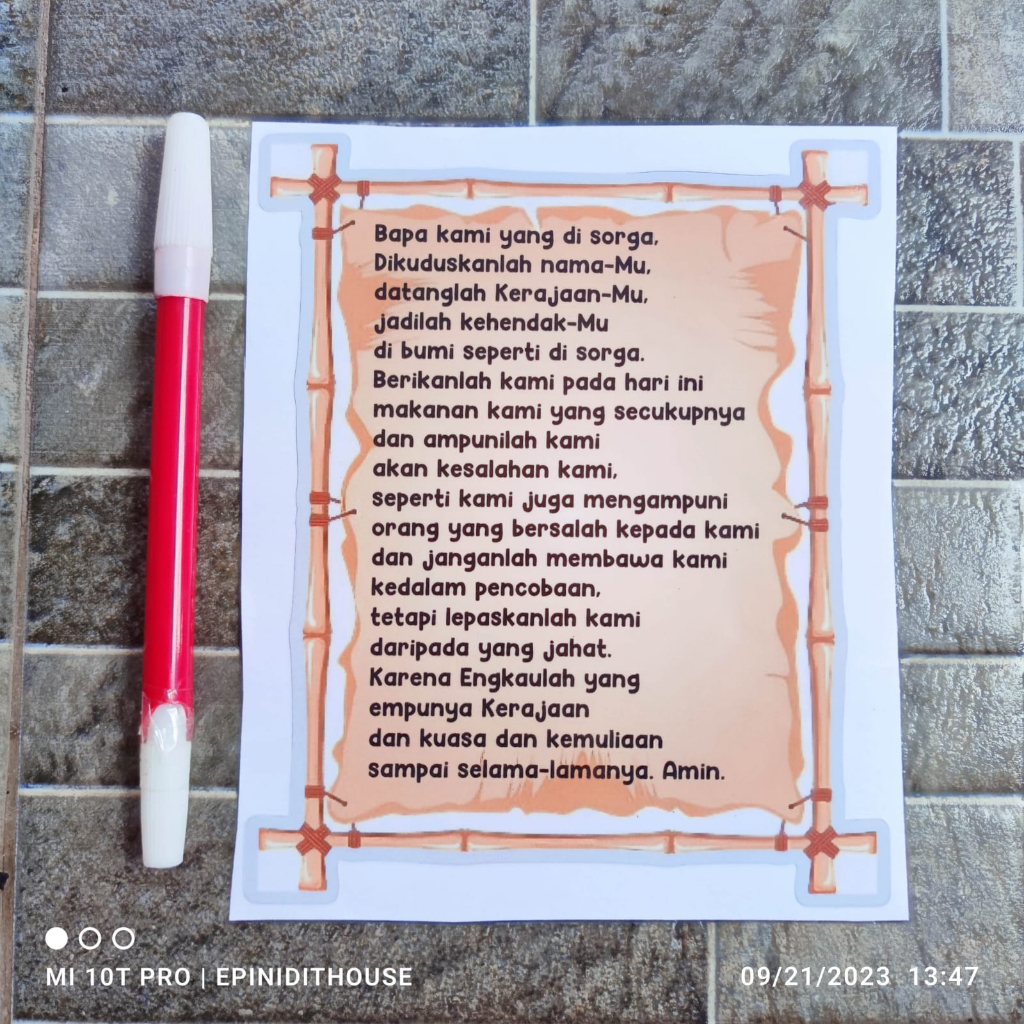 Bapa kami yang di sorga,
Dikuduskanlah nama-Mu,
datanglah Kerajaan-Mu,
jadilah kehendak-Mu
di bumi seperti di sorga.
Berikanlah kami pada hari ini
makanan kami yang secukupnya
dan ampunilah kami
akan kesalahan kami,
seperti kami juga mengampuni
orang yang bersalah kepada kami
dan janganlah membawa kami
kedalam pencobaan,
tetapi lepaskanlah kami
daripada yang jahat.
Karena Engkaulah yang
empunya Kerajaan
dan kuasa dan kemuliaan
sampai selama-lamanya. Amin.
MI 10T PRO | EPINIDITHOUSE
09/21/2023 13:47